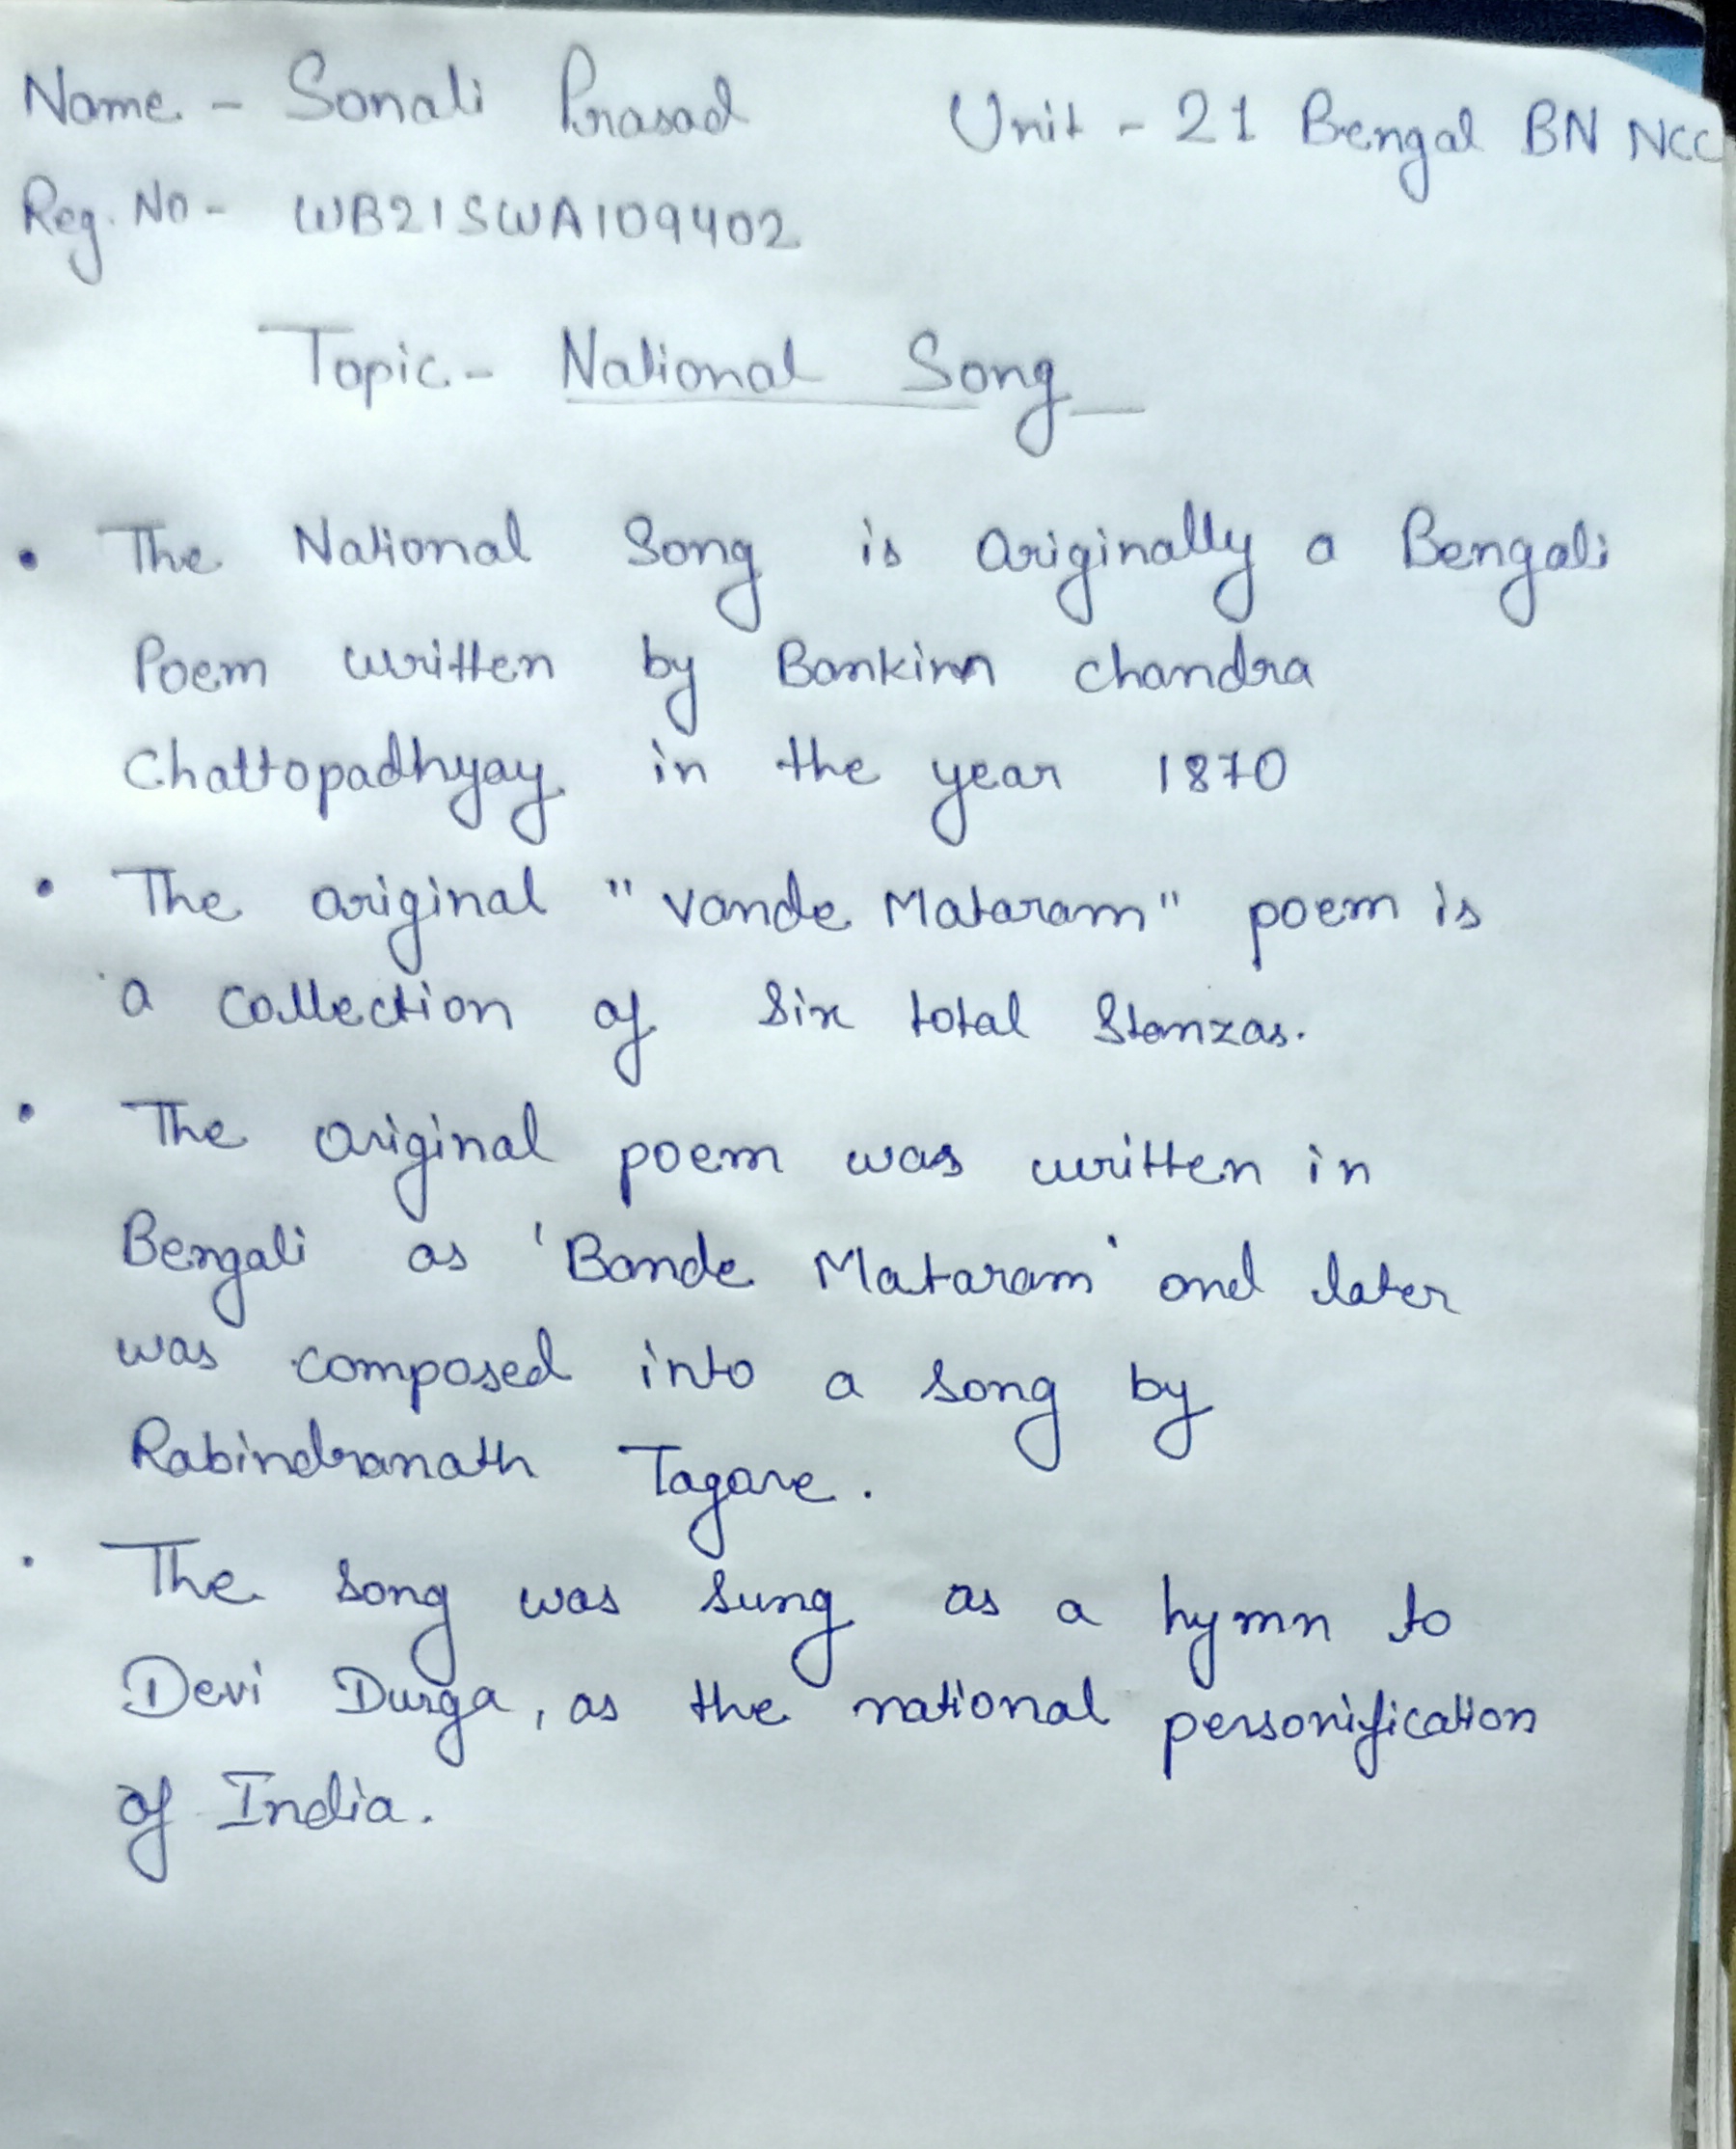 Name - Sonali Prasad Unit - 21 Bengal BN NCC
Reg. No - WB21SWA109402
Topic - National Song
• The National Song is originally a Bengali
Poem written by Bankim chandra
Chattopadhyay in the year 1870
• The original "Vande Mataram" poem is
a collection of six total Stanzas.
• The original poem was written in
Bengali as 'Bande Mataram' and later
was composed into a song by
Rabindranath Tagore.
• The song was sung as a hymn to
Devi Durga, as the national personification
of India.